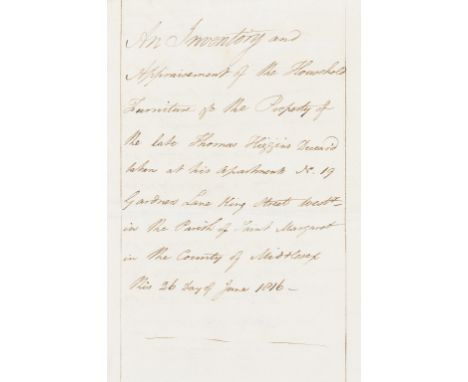 An Inventory and
Appraisement of the Household
Furniture &c the Property of
the late Thomas Higgins Deceas'd
taken at his Apartment No. 19
Gardners Lane King Street Westr
in the Parish of Saint Margaret
in the County of Middlesex
this 26 Day of June 1816 —